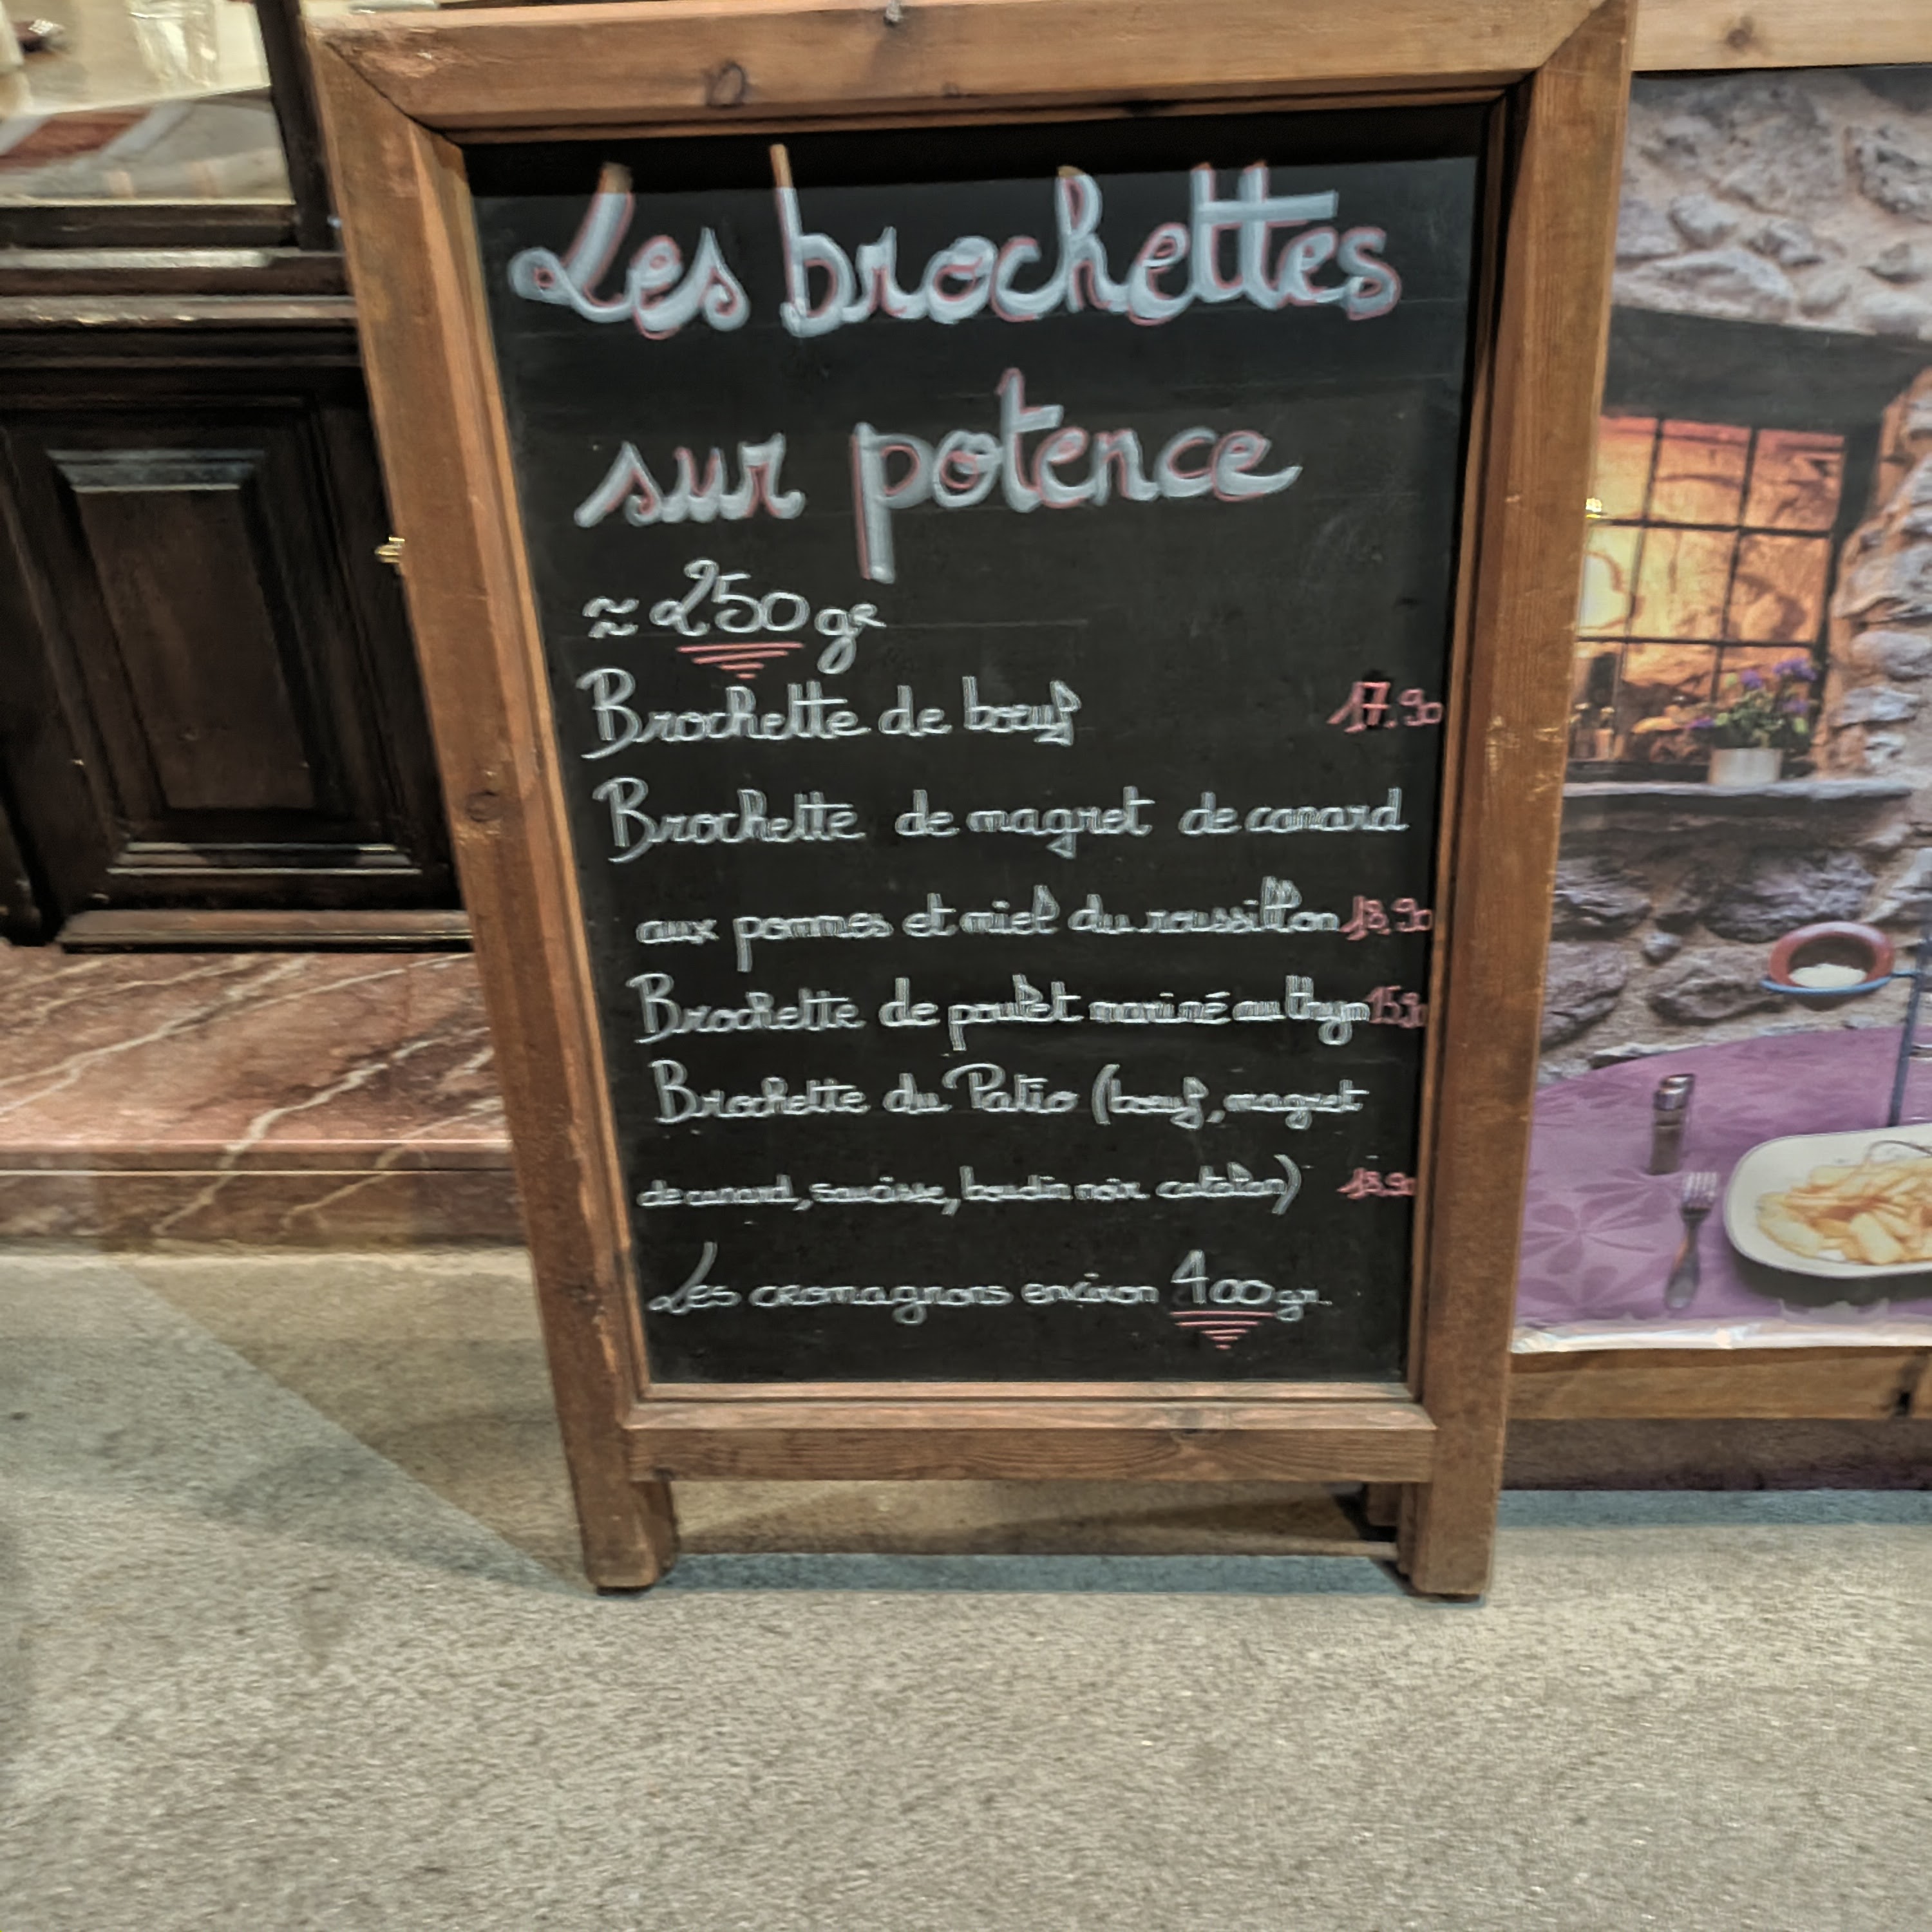 Les brochettes
sur potence
≈ 250 gr
Brochette de bœuf 17.90
Brochette de magret de canard
aux pommes et miel du roussillon 18.90
Brochette de poulet mariné au thym 15.90
Brochette du Patio (bœuf, magret
de canard, saucisse, boudin noir catalan) 18.90
Les cromagnons environ 400 gr.